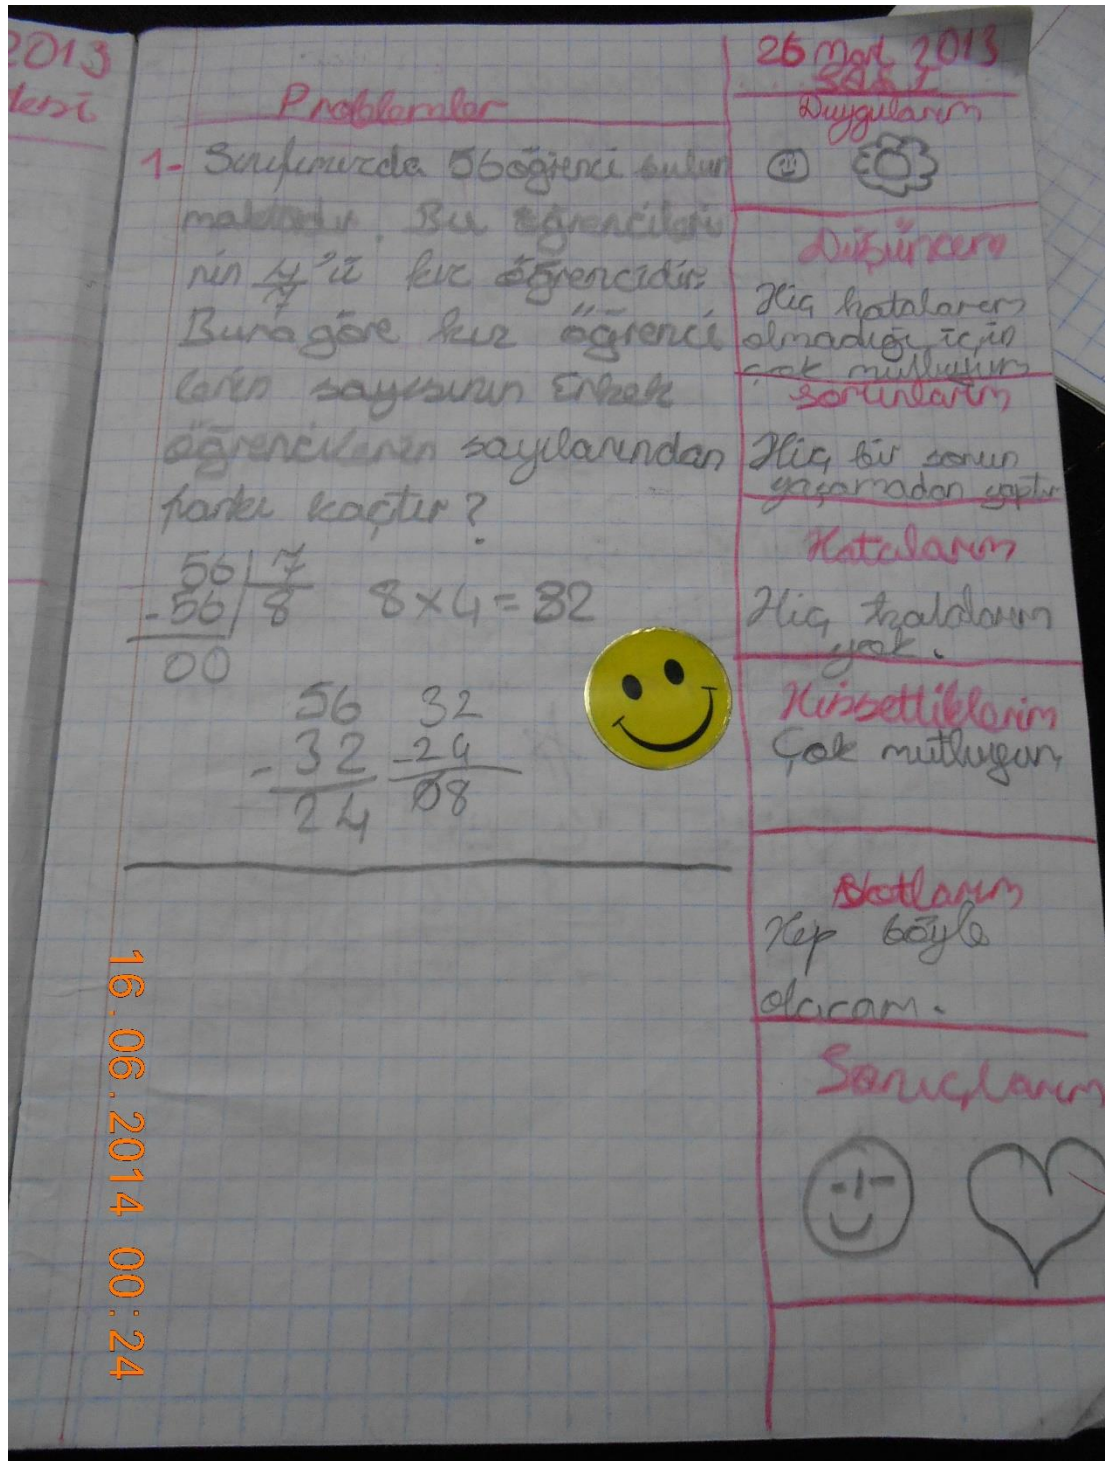 2013
Problemler
1- Sınıfımızda 56 öğrenci bulun
maktadır. Bu öğrencileri
nin 4/7'ü kız öğrencidir.
Buna göre kız öğrenci
lerin sayısının Erkek
öğrencilerin sayılarından
farkı kaçtır?
56 7
- 56 8 8 x 4 = 32
00
56 32
- 32 - 24
24 08
26 Mart 2013
SALI
Duygularım
Düşüncem
Hiç hatalarım
olmadığı için
çok mutluyum
Sorunlarım
Hiç bir sorun
yaşamadan yaptım
Hatalarım
Hiç hatalarım
yok.
Hissettiklerim
Çok mutluyum
Notlarım
Hep böyle
olacam.
Sonuçlarım
16.06.2014 00:24